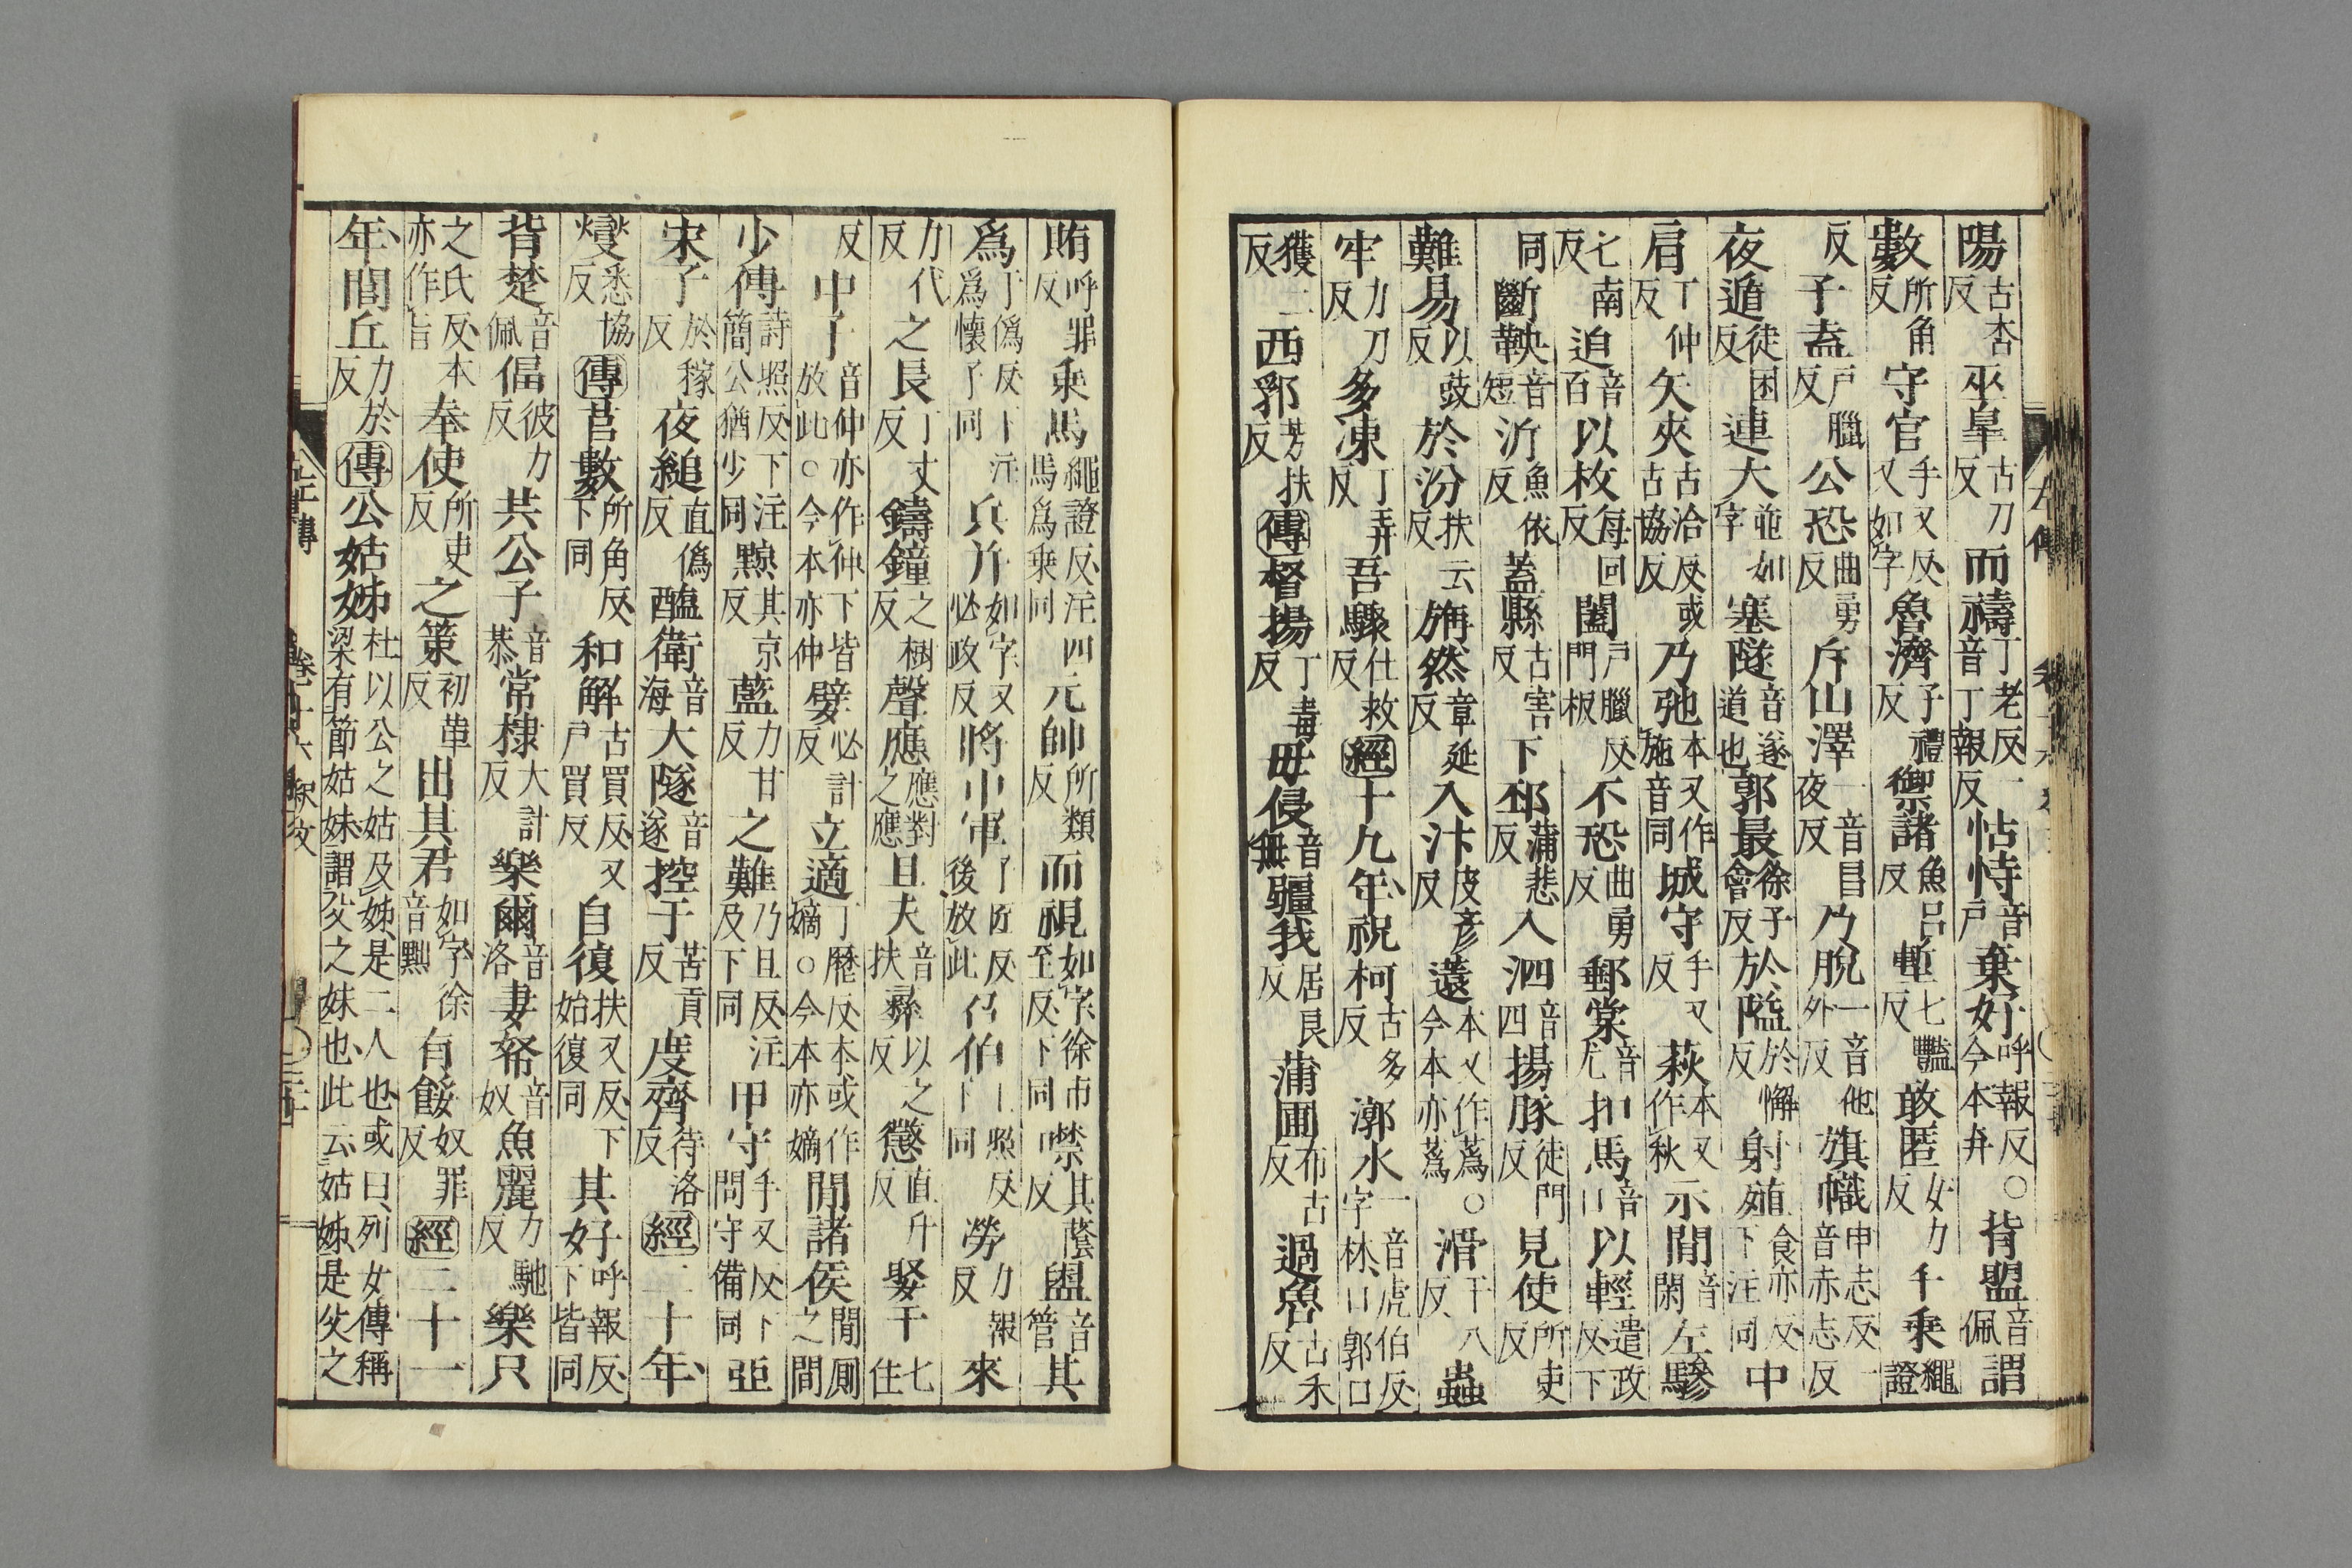 陽古杏反巫皐古刀反而禱丁老反一音丁報反怙恃音戶棄好呼報反○今本弃背盟音佩謂
數所角反守官手又反又如字魯濟子禮反禦諸魚呂反塹七豔反敢匿女力反千乘繩證
反子盍戶臘反公恐曲勇反斥山澤一音昌夜反乃脫一音他外反旗幟申志反一音赤志反
夜遁徒困反連大並如字塞隧音遂道也郭最徐子會反於隘於懈反射殖食亦反下注同中
肩丁仲反矢夾古洽反或古協反乃弛本又作施音同城守手又反萩本又作秋示閒音閑左驂
七南反迫音百以枚每回反闔戶臘反門板不恐曲勇反郵棠音尤扣馬音口以輕遣政反下
同斷鞅音短沂魚依反蓋縣古害反下邳蒲悲反入泗音四揚豚徒門反見使所吏反
難易以豉反於汾扶云反旃然章延反入汴皮彥反薳本又作蔿○今本亦蔿滑于八反蟲
牢力刀反多凍丁弄反吾驟仕救反經十九年祝柯古多反漷水一音虎伯反字林口郭口
獲二反西郛芳扶反傳督揚丁毒反毋侵音無疆我居良反蒲圃布古反過魯古禾反
賄呼罪反乘馬繩證反注四馬爲乘同元帥所類反而視如字徐市至反下同噤其蔭反盥音管其
爲丁僞反下注爲懷子同兵并如字又必政反將中軍子匠反後放此召伯上照反下同勞力報反來
力代反之長丁丈反鑄鐘之樹反聲應應對之應且夫音扶彝以之反懲直升反娶于七住
反中子音仲亦作仲下皆放此○今本亦仲嬖必計反立適丁歷反本或作嫡○今本亦嫡閒諸侯閒厠之閒
少傳詩照反下注簡公猶少同黥其京反藍力甘反之難乃旦反注及下同甲守手又反下問守備同亞
宋子於稼反夜縋直僞反醢衛音海大隧音遂控于苦貢反度齊待洛反經二十年
燮悉協反傳莒數所角反下同和解古買反又戶買反自復扶又反下始復同其好呼報反下皆同
背楚音佩偪彼力反共公子音恭常棣大計反樂爾音洛妻帑音奴魚麗力馳反樂只
之氏反本亦作旨奉使所吏反之策初革反出其君如字徐音黜有餒奴罪反經二十一
年閭丘力於反傳公姑姊杜以公之姑及姊是二人也或曰列女傳稱梁有節姑妹謂父之妹也此云姑姊是父之